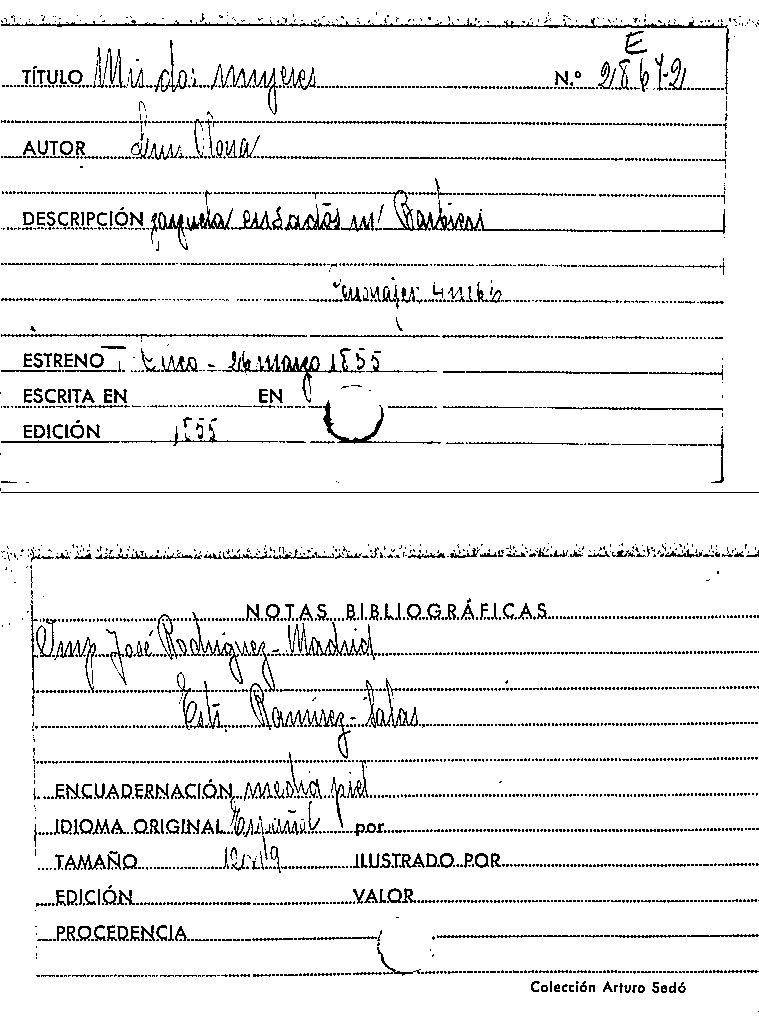 E
TÍTULO Mis dos mujeres N.º 2867-2
AUTOR Luis Olona
DESCRIPCIÓN zarzuela en 3 actos m/ Barbieri
personajes 4m y 6h
ESTRENO T. Circo - 26 marzo 1855
ESCRITA EN EN
EDICIÓN 1855
NOTAS BIBLIOGRÁFICAS
Imp José Rodriguez - Madrid
Estr. Ramírez - Salas
ENCUADERNACIÓN media piel
IDIOMA ORIGINAL Español por
TAMAÑO 12x19 ILUSTRADO POR
EDICIÓN VALOR
PROCEDENCIA
Colección Arturo Sedó